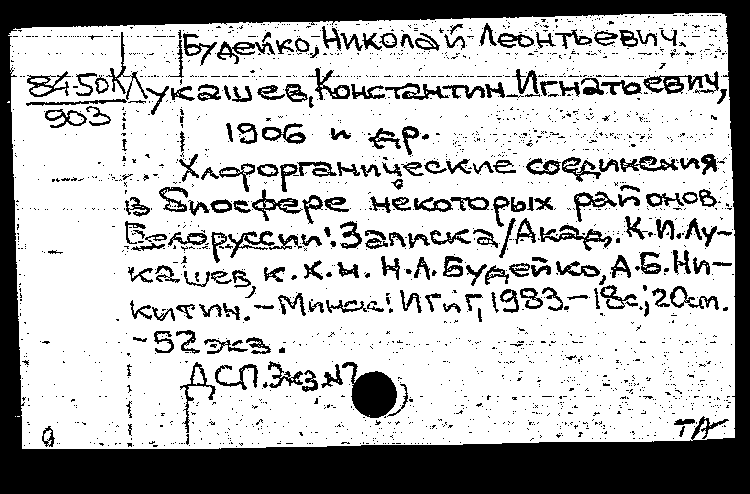 Будейко, Николай Леонтьевич.
84-50К Лукашев, Константин Игнатьевич,
903
1906 и др.
Хлорорганические соединения
в биосфере некоторых районов
Белоруссии: Записка / Акад. К.И. Лу-
кашев, к.х.н. Н.Л. Будейко, А.Б. Ни-
китин. - Минск: ИГиГ, 1983. - 18с.; 20см.
- 52 экз.
ДСП. Экз. №7
д
ТА